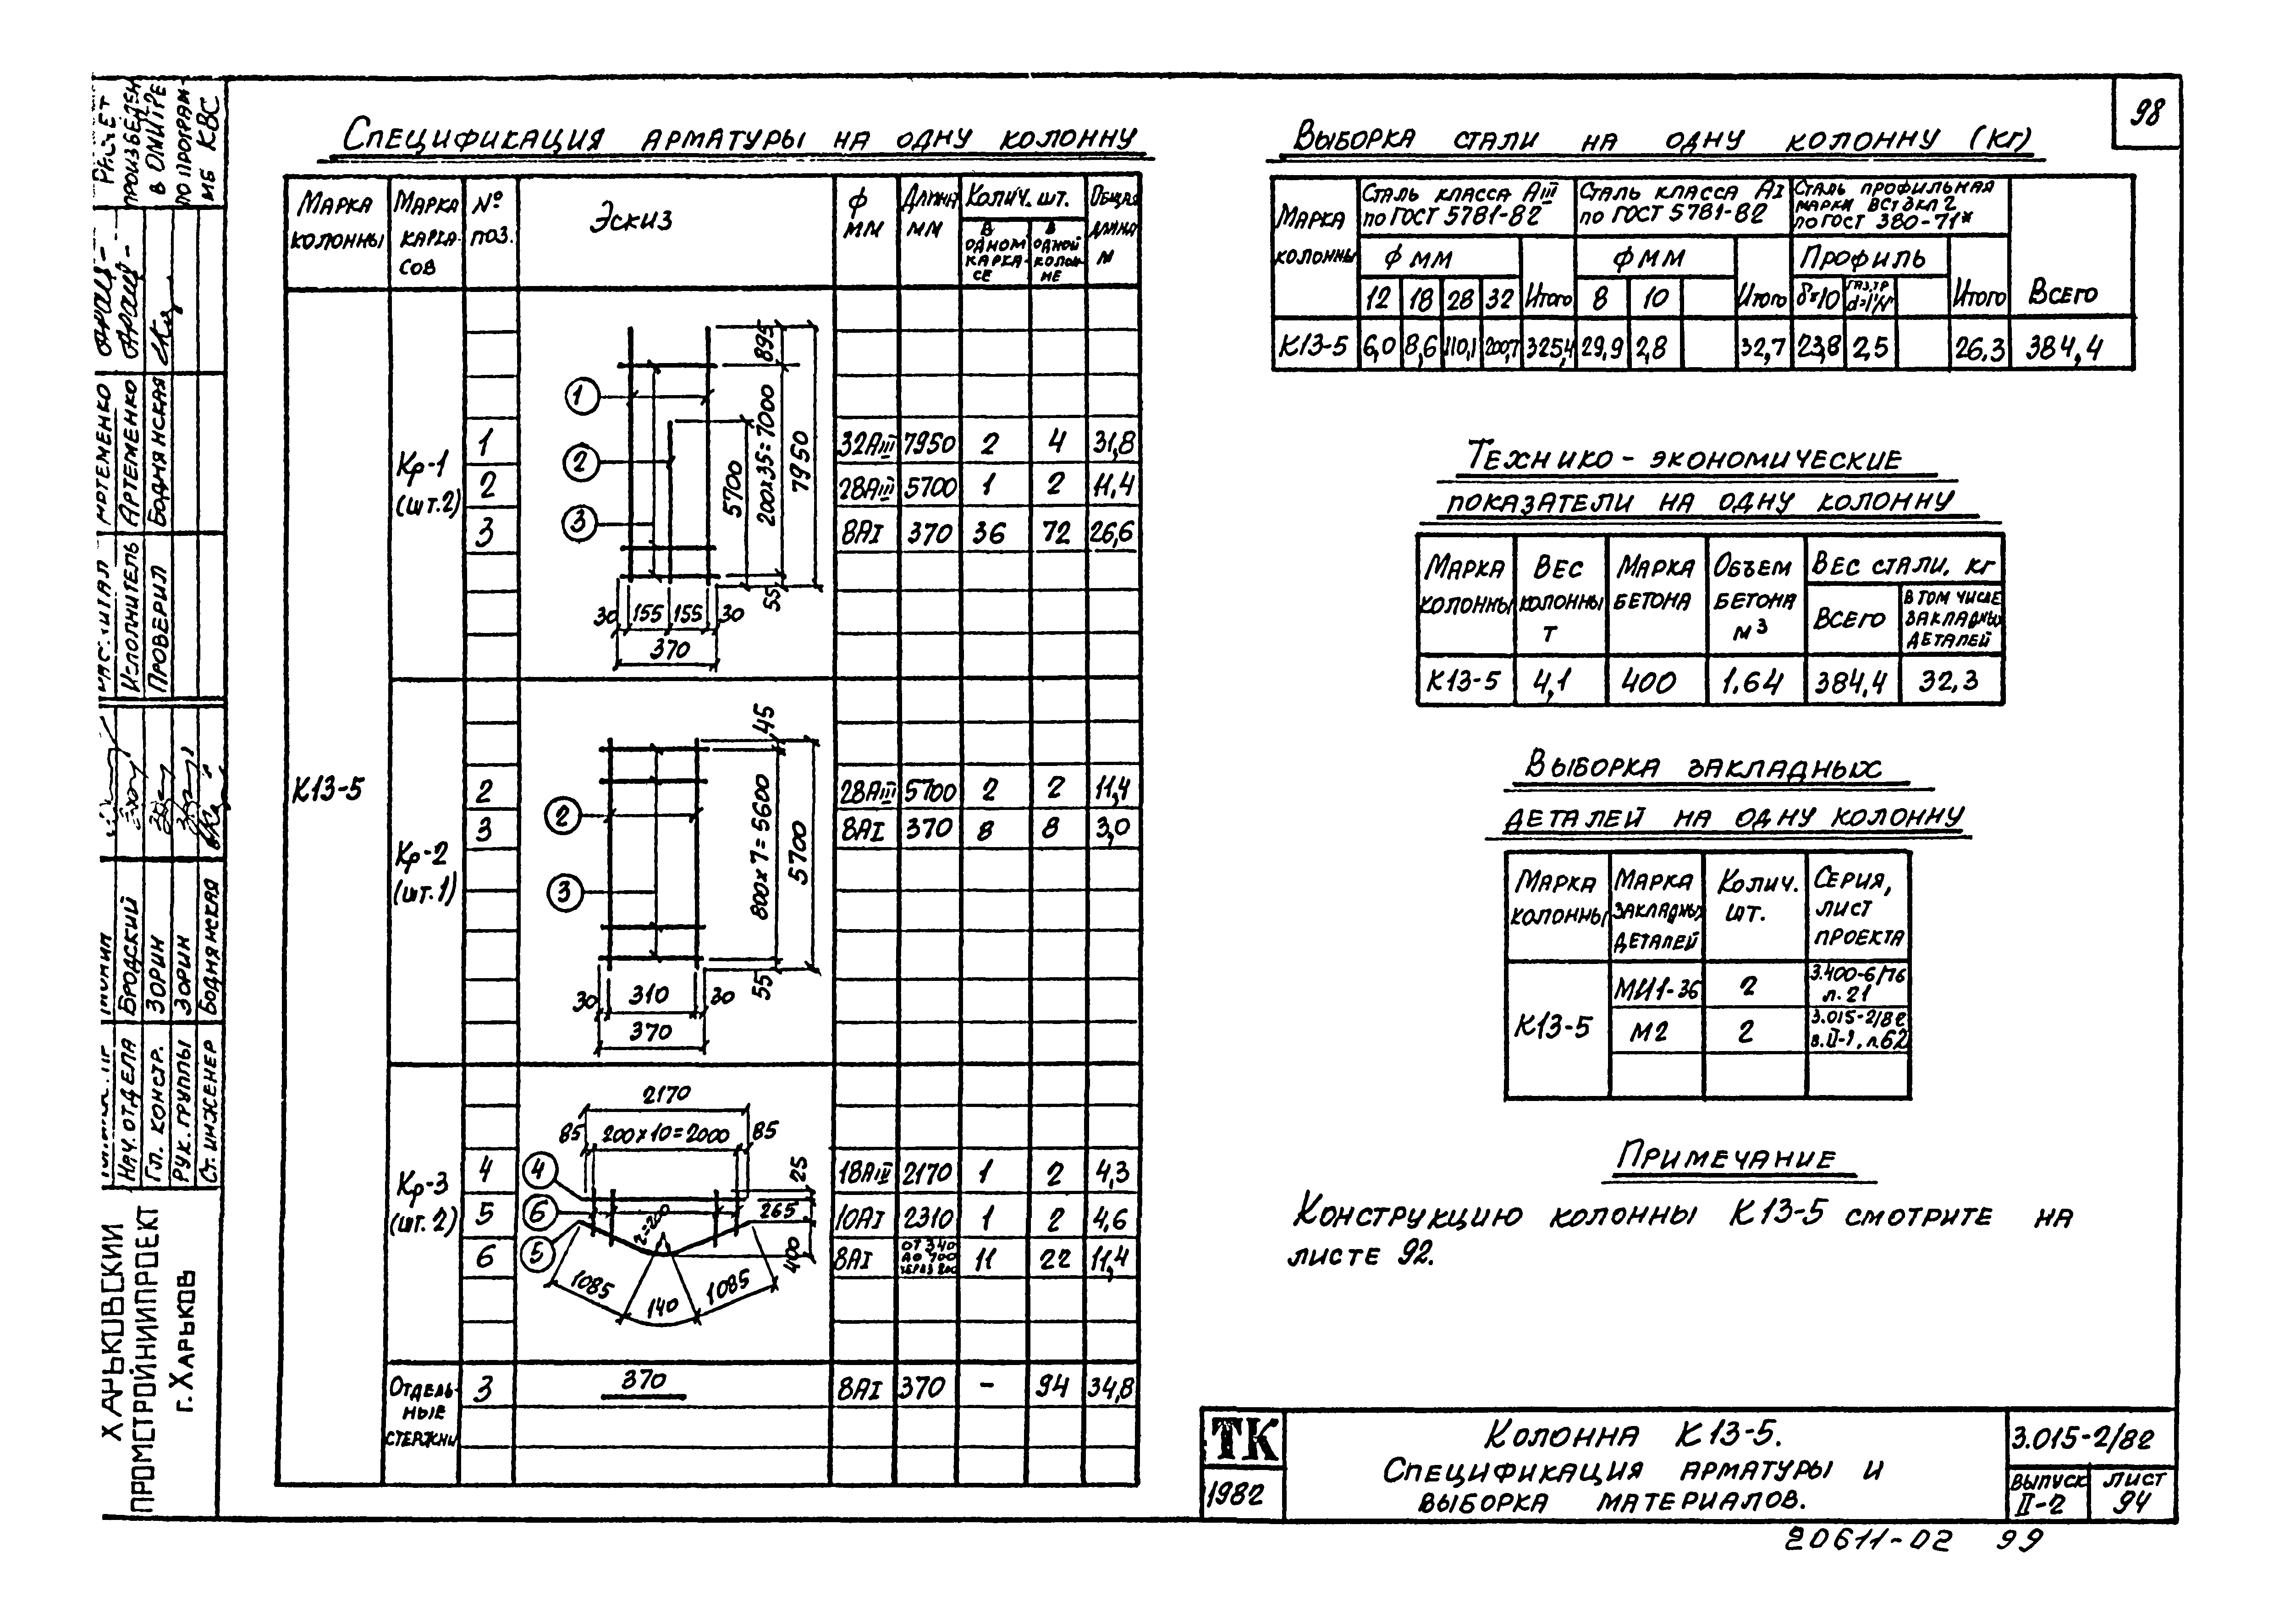 98
Спецификация арматуры на одну колонну
Марка колонны
Марка каркасов
№ поз.
Эскиз
ф мм
Длина мм
Колич. шт.
в одном каркасе
в одной колонне
Общая длина м
К13-5
Кр-1 (шт.2)
1 32АIII 7950 2 4 31,8
2 28АIII 5700 1 2 11,4
3 8АI 370 36 72 26,6
1
2
3
895
200х35=7000
7950
5700
55
30 155 155 30
370
Кр-2 (шт.1)
2 28АIII 5700 2 2 11,4
3 8АI 370 8 8 3,0
2
3
45
800х7=5600
5700
55
30 310 30
370
Кр-3 (шт.2)
4 18АIII 2170 1 2 4,3
5 10АI 2310 1 2 4,6
6 8АI от 340 до 700 11 22 11,4
2170
85 200х10=2000 85
4
6
5
25
265
400
1085 140 1085
Отдельные стержни
3 370 8АI 370 - 94 34,8
Выборка стали на одну колонну (кг)
Марка колонны
Сталь класса АIII по ГОСТ 5781-82
Сталь класса АI по ГОСТ 5781-82
Сталь профильная марки ВСт3кп2 по ГОСТ 380-71*
Всего
ф мм
ф мм
Профиль
12 18 28 32 Итого 8 10 Итого δ=10 газ.тр. d=1"  Итого
К13-5 6,0 8,6 110,1 200,7 325,4 29,9 2,8 32,7 23,8 2,5 26,3 384,4
Технико-экономические
показатели на одну колонну
Марка колонны
Вес колонны т
Марка бетона
Объем бетона м3
Вес стали, кг
Всего
в том числе закладных деталей
К13-5 4,1 400 1.64 384,4 32,3
Выборка закладных
деталей на одну колонну
Марка колонны
Марка закладных деталей
Колич. шт.
Серия, лист проекта
К13-5
МИ1-36 2 3.400-6/76 л.21
М2 2 3.015-2/82 л.62
Примечание
Конструкцию колонны К13-5 смотрите на
листе 92.
ТК
1982
Колонна К13-5.
Спецификация арматуры и
выборка материалов.
3.015-2/82
выпуск II-2
лист 94
20611-02 99
Расчет
произведен
в ОМиТРе
по програм-
ме КВС
Артеменко
Исполнитель Артеменко
Проверил Боднянская
Нач. отдела Бродский
Гл. констр. Зорин
Рук. группы Зорин
Ст. инженер Боднянская
Харьковский
Промстройниипроект
г. Харьков